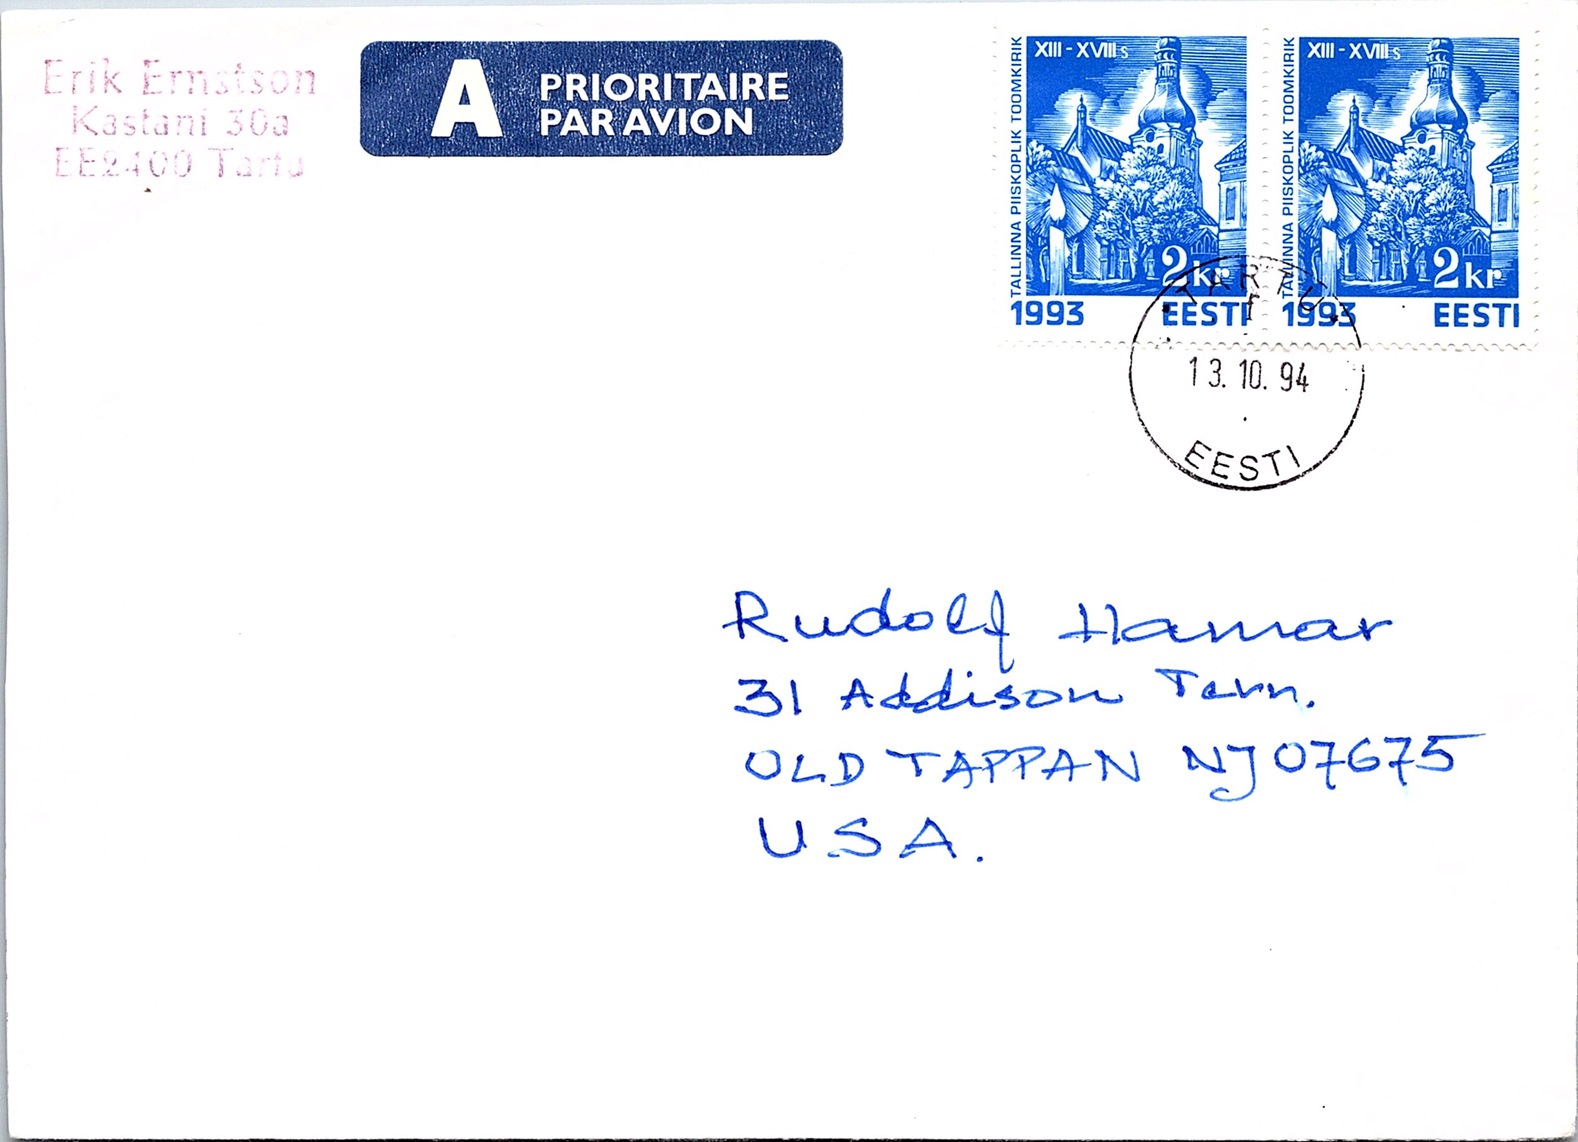 Erik Ernstson
Kastani 30a
EE2400 Tartu
A PRIORITAIRE
PAR AVION
XIII - XVIII s
TALLINNA PIISKOPLIK TOOMKIRIK
2 kr
1993 EESTI
XIII - XVIII s
TALLINNA PIISKOPLIK TOOMKIRIK
2 kr
1993 EESTI
TARTU
13.10.94
EESTI
Rudolf Hamar
31 Addison Terr.
OLD TAPPAN NJ 07675
USA.